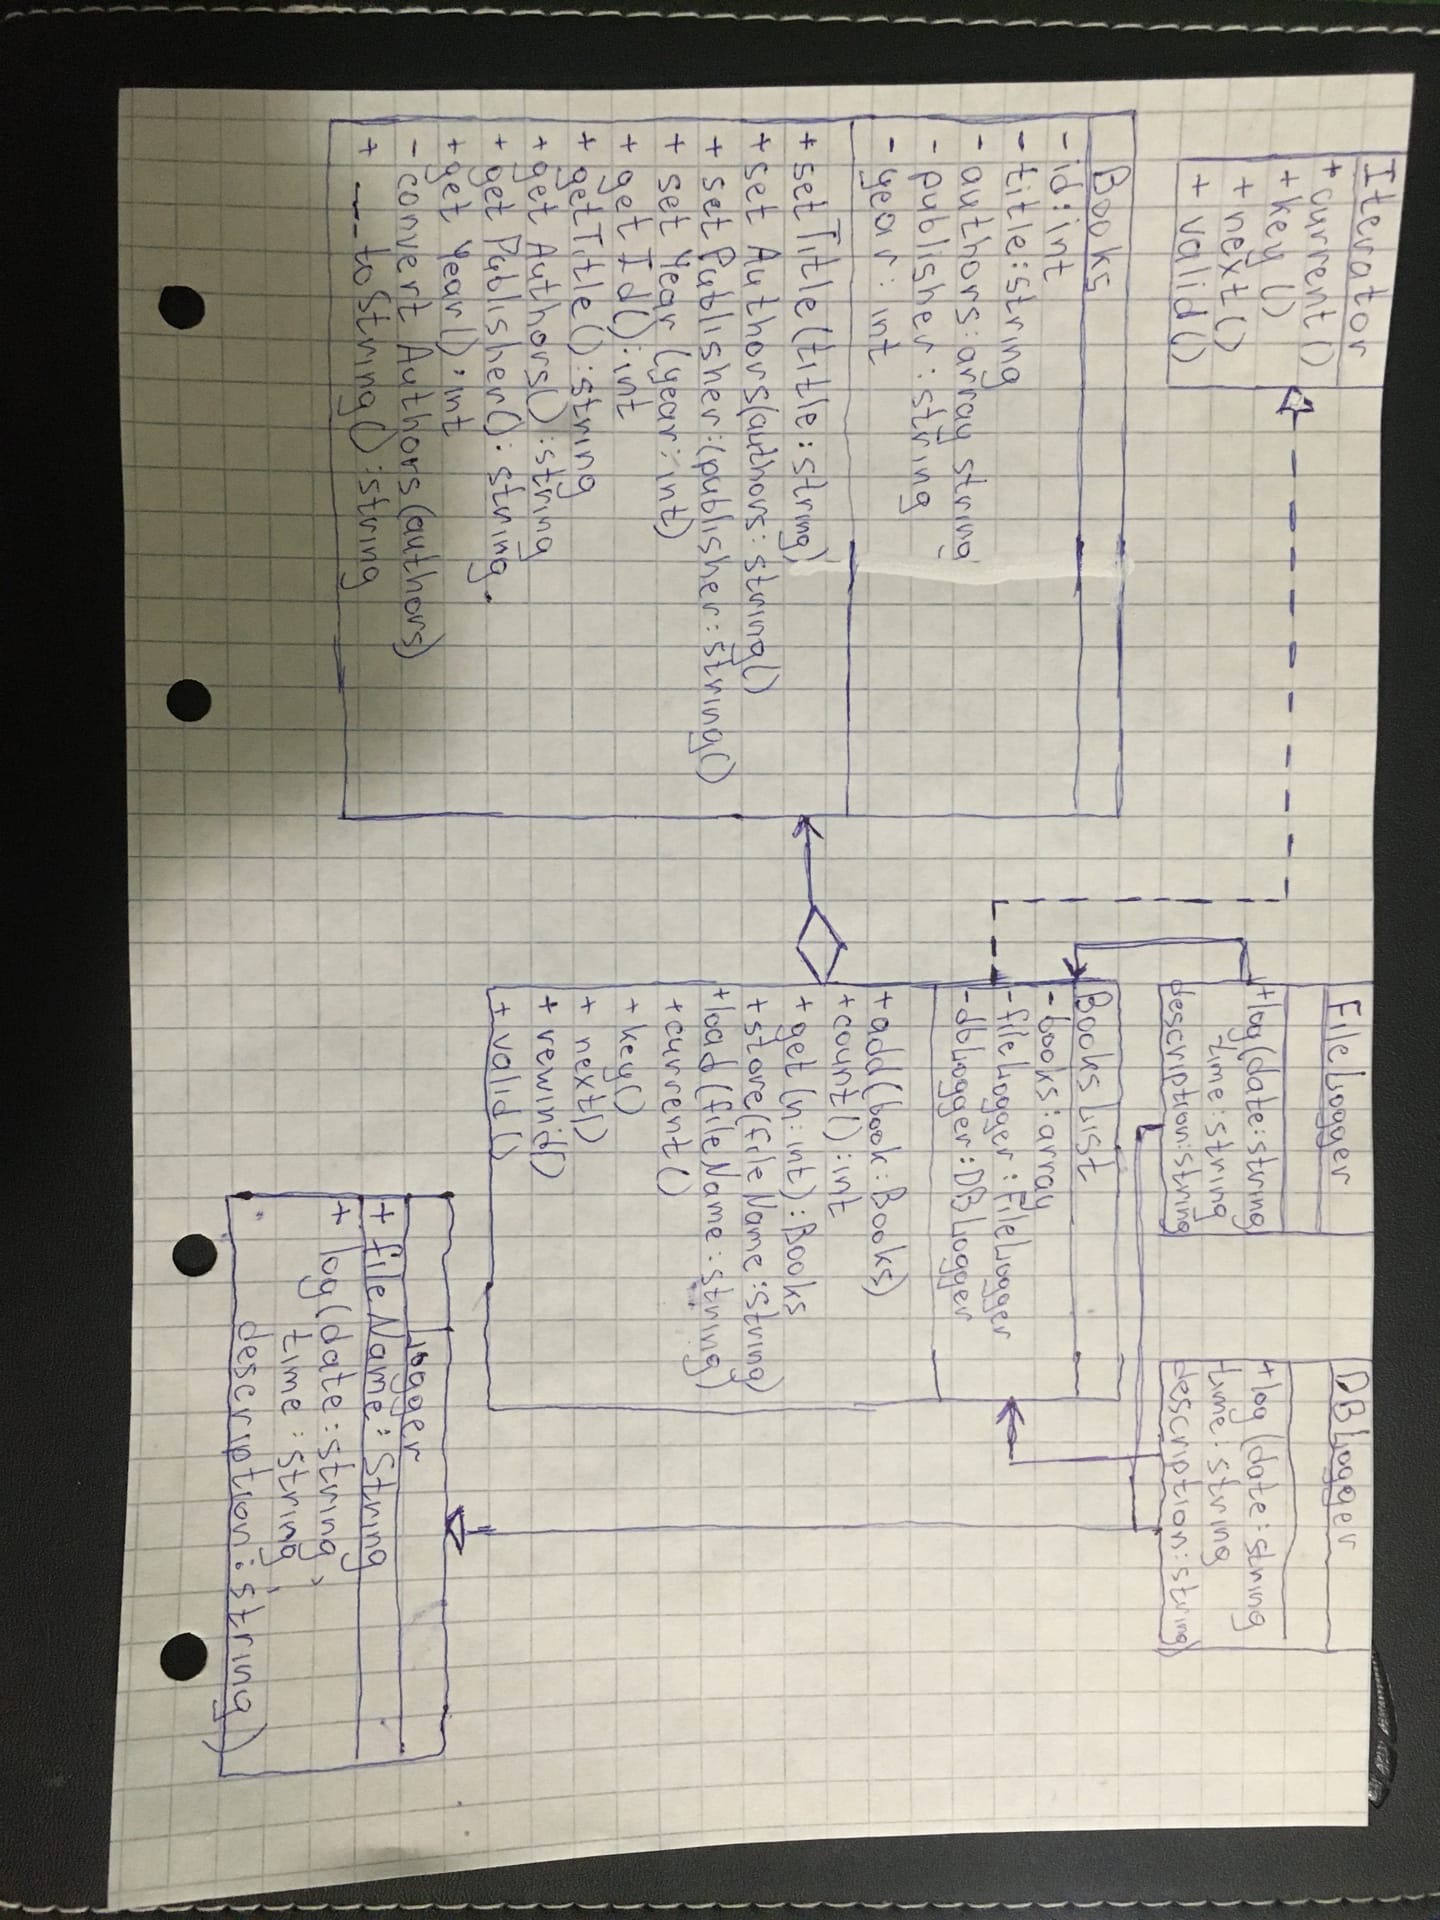 Iterator
+ current()
+ key ()
+ next()
+ valid()
FileLogger
+log(date:string
time:string
description:string
DBLogger
+log (date:string
time: string
description:string)
Books
- id:int
- title:string
- authors:array string
- publisher:string
- year: int
+ setTitle(title:string)
+ set Authors(authors: string()
+ setPublisher:(publisher:string()
+ set Year (year: int)
+ get Id():int
+ getTitle():string
+ get Authors():string
+ get Publisher(): string.
+ get Year():int
- convert Authors(authors)
+ __toString():string
Books List
- books:array
- fileLogger:FileLogger
- dbLogger:DBLogger
+ add(book:Books)
+ count():int
+ get (n:int):Books
+ store(fileName:string)
+ load (fileName:string)
+ current()
+ key()
+ next()
+ rewind()
+ valid()
Logger
+ fileName: String
+ log(date:string,
time:string,
description:string)